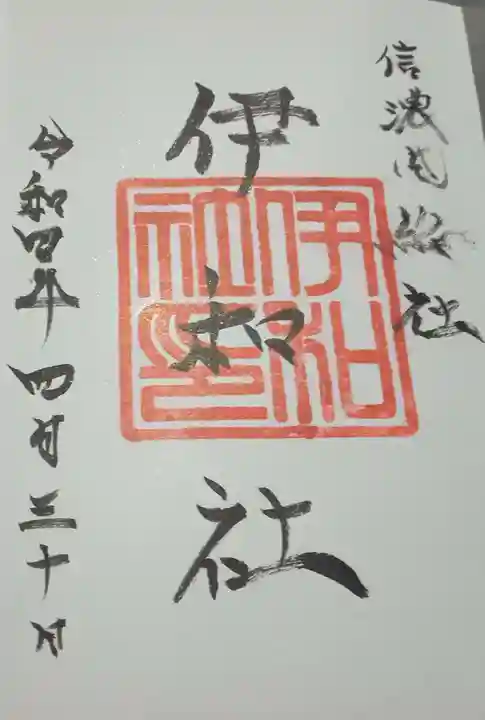 信濃国総社
伊和社
伊和社印
令和四年四月三十日